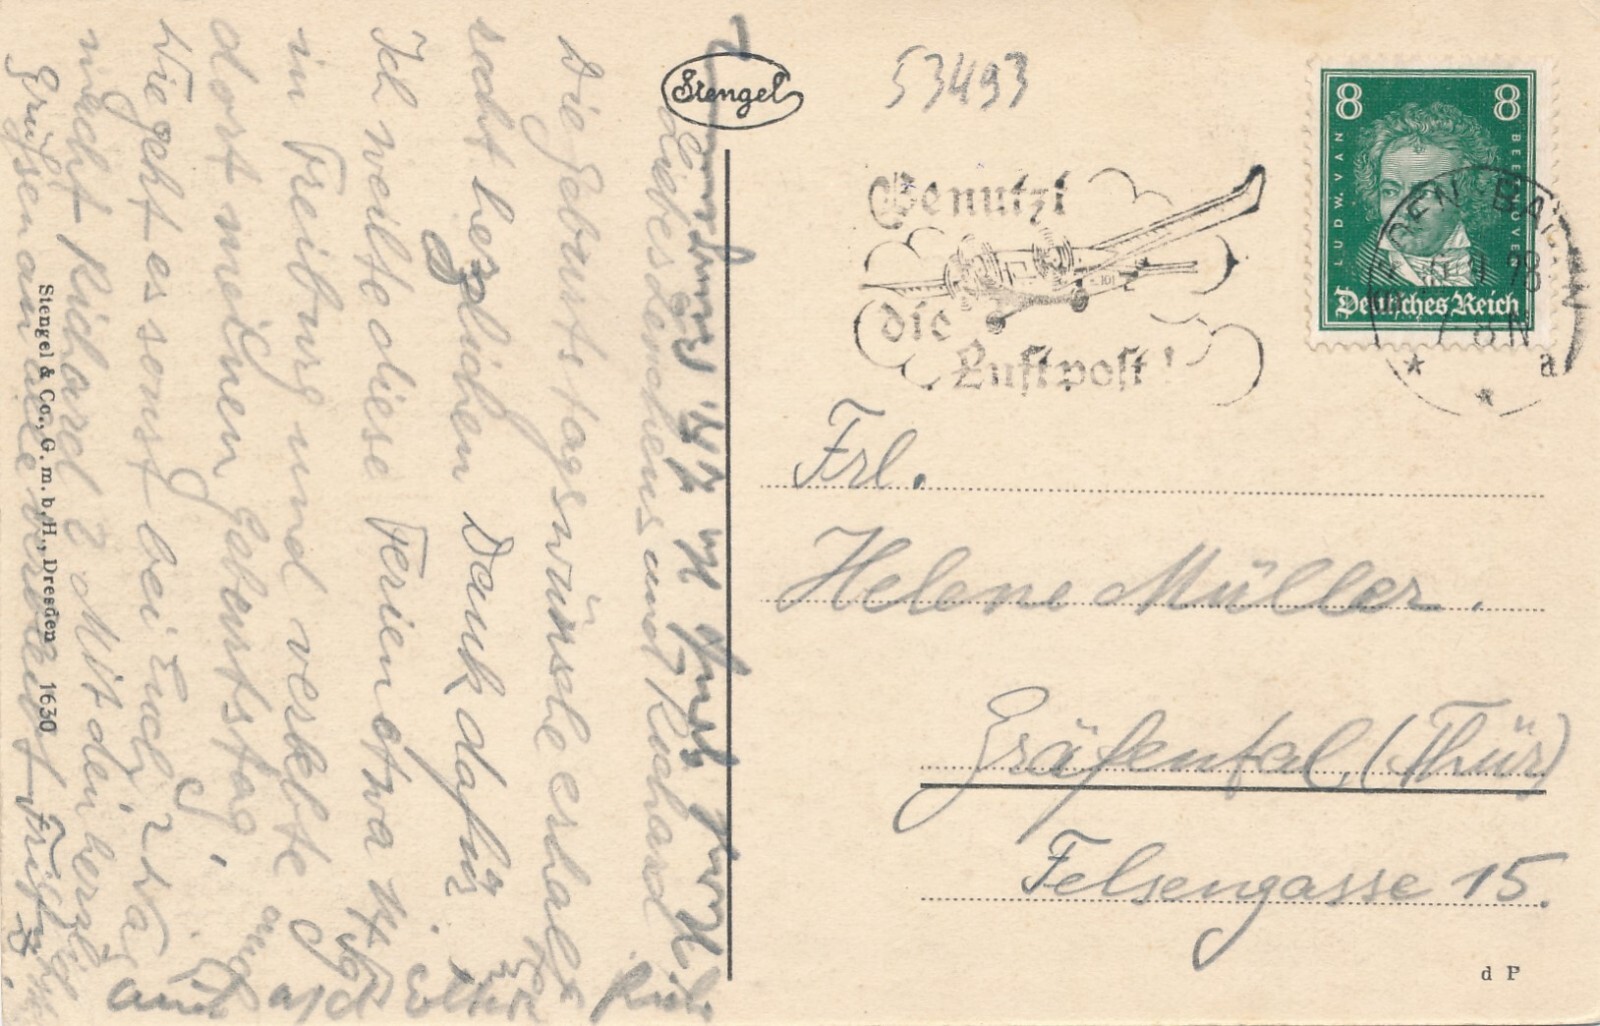 Stengel
53493
Benutzt
die
Luftpost!
8 8
LUDW. VAN BEETHOVEN
Deutsches Reich
BADEN-BADEN
a
Frl.
Helene Müller.
Gräfental, (Thür)
Felsengasse 15.
d P
Stengel & Co., G. m. b. H., Dresden 1630
Liebes Lenchens und Richard
Die Geburtstagswünsche erhalten
recht herzlichen Dank dafür.
Ich weilte diese Ferien etwa 14 Tg
in Freiburg und verlebte auch
dort meinen Geburtstag,
Wie geht es sonst bei Euch, was
macht Richard? Mit den herzl.
Grüßen an alle verbleibt